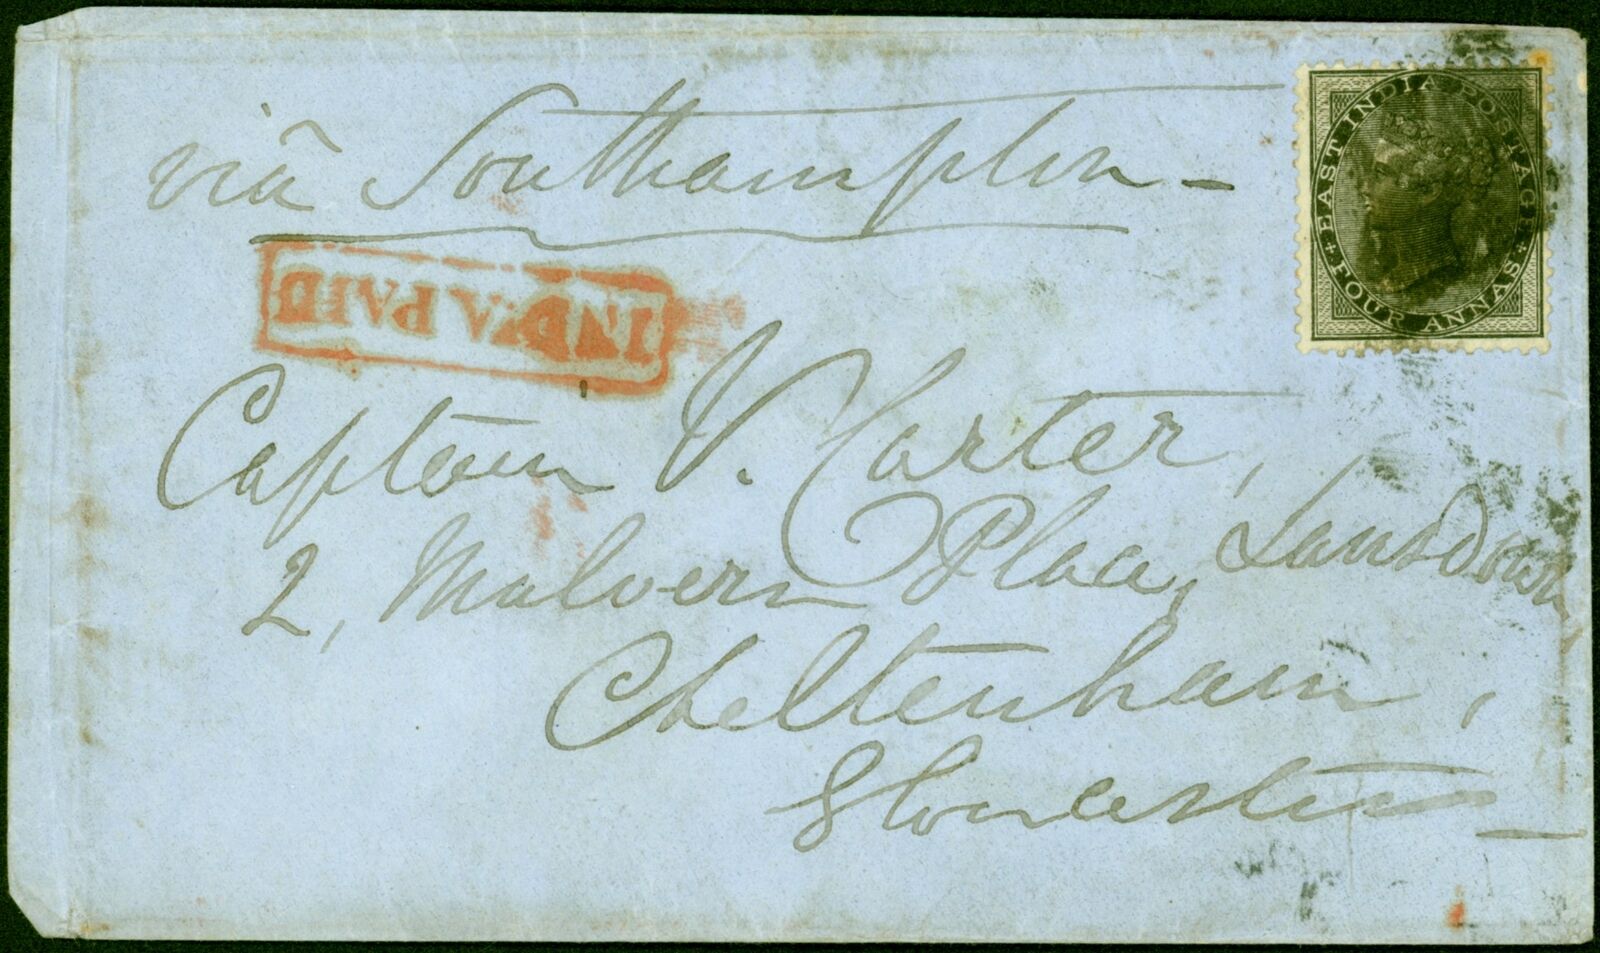 viâ Southampton -
EAST INDIA POSTAGE
FOUR ANNAS
INDIA PAID
Captain J. Carter,
2, Malvern Place, Lansdown
Cheltenham,
Gloucester